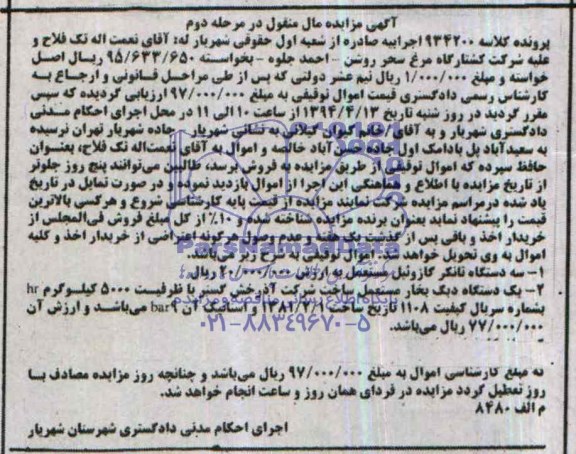 آگهی مزایده مال منقول در مرحله دوم
پرونده کلاسه ۹۳۴۲۰۰ اجراییه صادره از شعبه اول حقوقی شهریار له: آقای نعمت اله تک فلاح و
علیه شرکت کشتارگاه مرغ سحر روشن - احمد جلوه - بخواسته ۹۵/۶۳۳/۶۵۰ ریال اصل
خواسته و مبلغ ۱/۰۰۰/۰۰۰ ریال نیم عشر دولتی که پس از طی مراحل قانونی و ارجاع به
کارشناس رسمی دادگستری قیمت اموال توقیفی به مبلغ ۹۷/۰۰۰/۰۰۰ ارزیابی گردیده که سپس
مقرر گردید در روز شنبه تاریخ ۱۳۹۴/۴/۱۳ از ساعت ۱۰ الی ۱۱ در محل اجرای احکام مدنی
دادگستری شهریار و به آقای/خانم کیوان گیلانی به نشانی شهریار - جاده شهریار تهران نرسیده
به سعیدآباد پل بادامک اول جاده حسن آباد خالصه و اموال به آقای نعمت‌اله تک فلاح، بعنوان
حافظ سپرده که اموال توقیفی از طریق مزایده به فروش برسد، طالبین می‌توانند پنج روز جلوتر
از تاریخ مزایده با اطلاع و هماهنگی این اجرا از اموال بازدید نموده و در صورت تمایل در تاریخ
یاد شده درمراسم مزایده شرکت نمایند مزایده از قیمت پایه کارشناسی شروع و هرکسی بالاترین
قیمت را پیشنهاد نماید بعنوان برنده مزایده شناخته شده و ۱۰٪ از کل مبلغ فروش فی‌المجلس از
خریدار اخذ و باقی پس از گذشت یک هفته و عدم وصول هرگونه اعتراضی از خریدار اخذ و کلیه
اموال به وی تحویل خواهد شد. اموال توقیفی به شرح زیر می‌باشد.
۱- سه دستگاه تانکر گازوئیل مستعمل به ارزش ۲۰/۰۰۰/۰۰۰ ریال
۲- یک دستگاه دیگ بخار مستعمل ساخت شرکت آذرخش گستر با ظرفیت ۵۰۰۰ کیلوگرم hr
بشماره سریال کیفیت ۱۱۰۸ تاریخ ساخت ۱۳۸۲/۷/۱ و استاتیک آن ۹ bar می‌باشد و ارزش آن
۷۷/۰۰۰/۰۰۰ ریال می‌باشد.
ته مبلغ کارشناسی اموال به مبلغ ۹۷/۰۰۰/۰۰۰ ریال می‌باشد و چنانچه روز مزایده مصادف با
روز تعطیل گردد مزایده در فردای همان روز و ساعت انجام خواهد شد.
م الف ۸۴۸۰
اجرای احکام مدنی دادگستری شهرستان شهریار
ParsNamadData
پایگاه اطلاع رسانی مناقصه و مزایده
۰۲۱-۸۸۳۴۹۶۷۰-۵